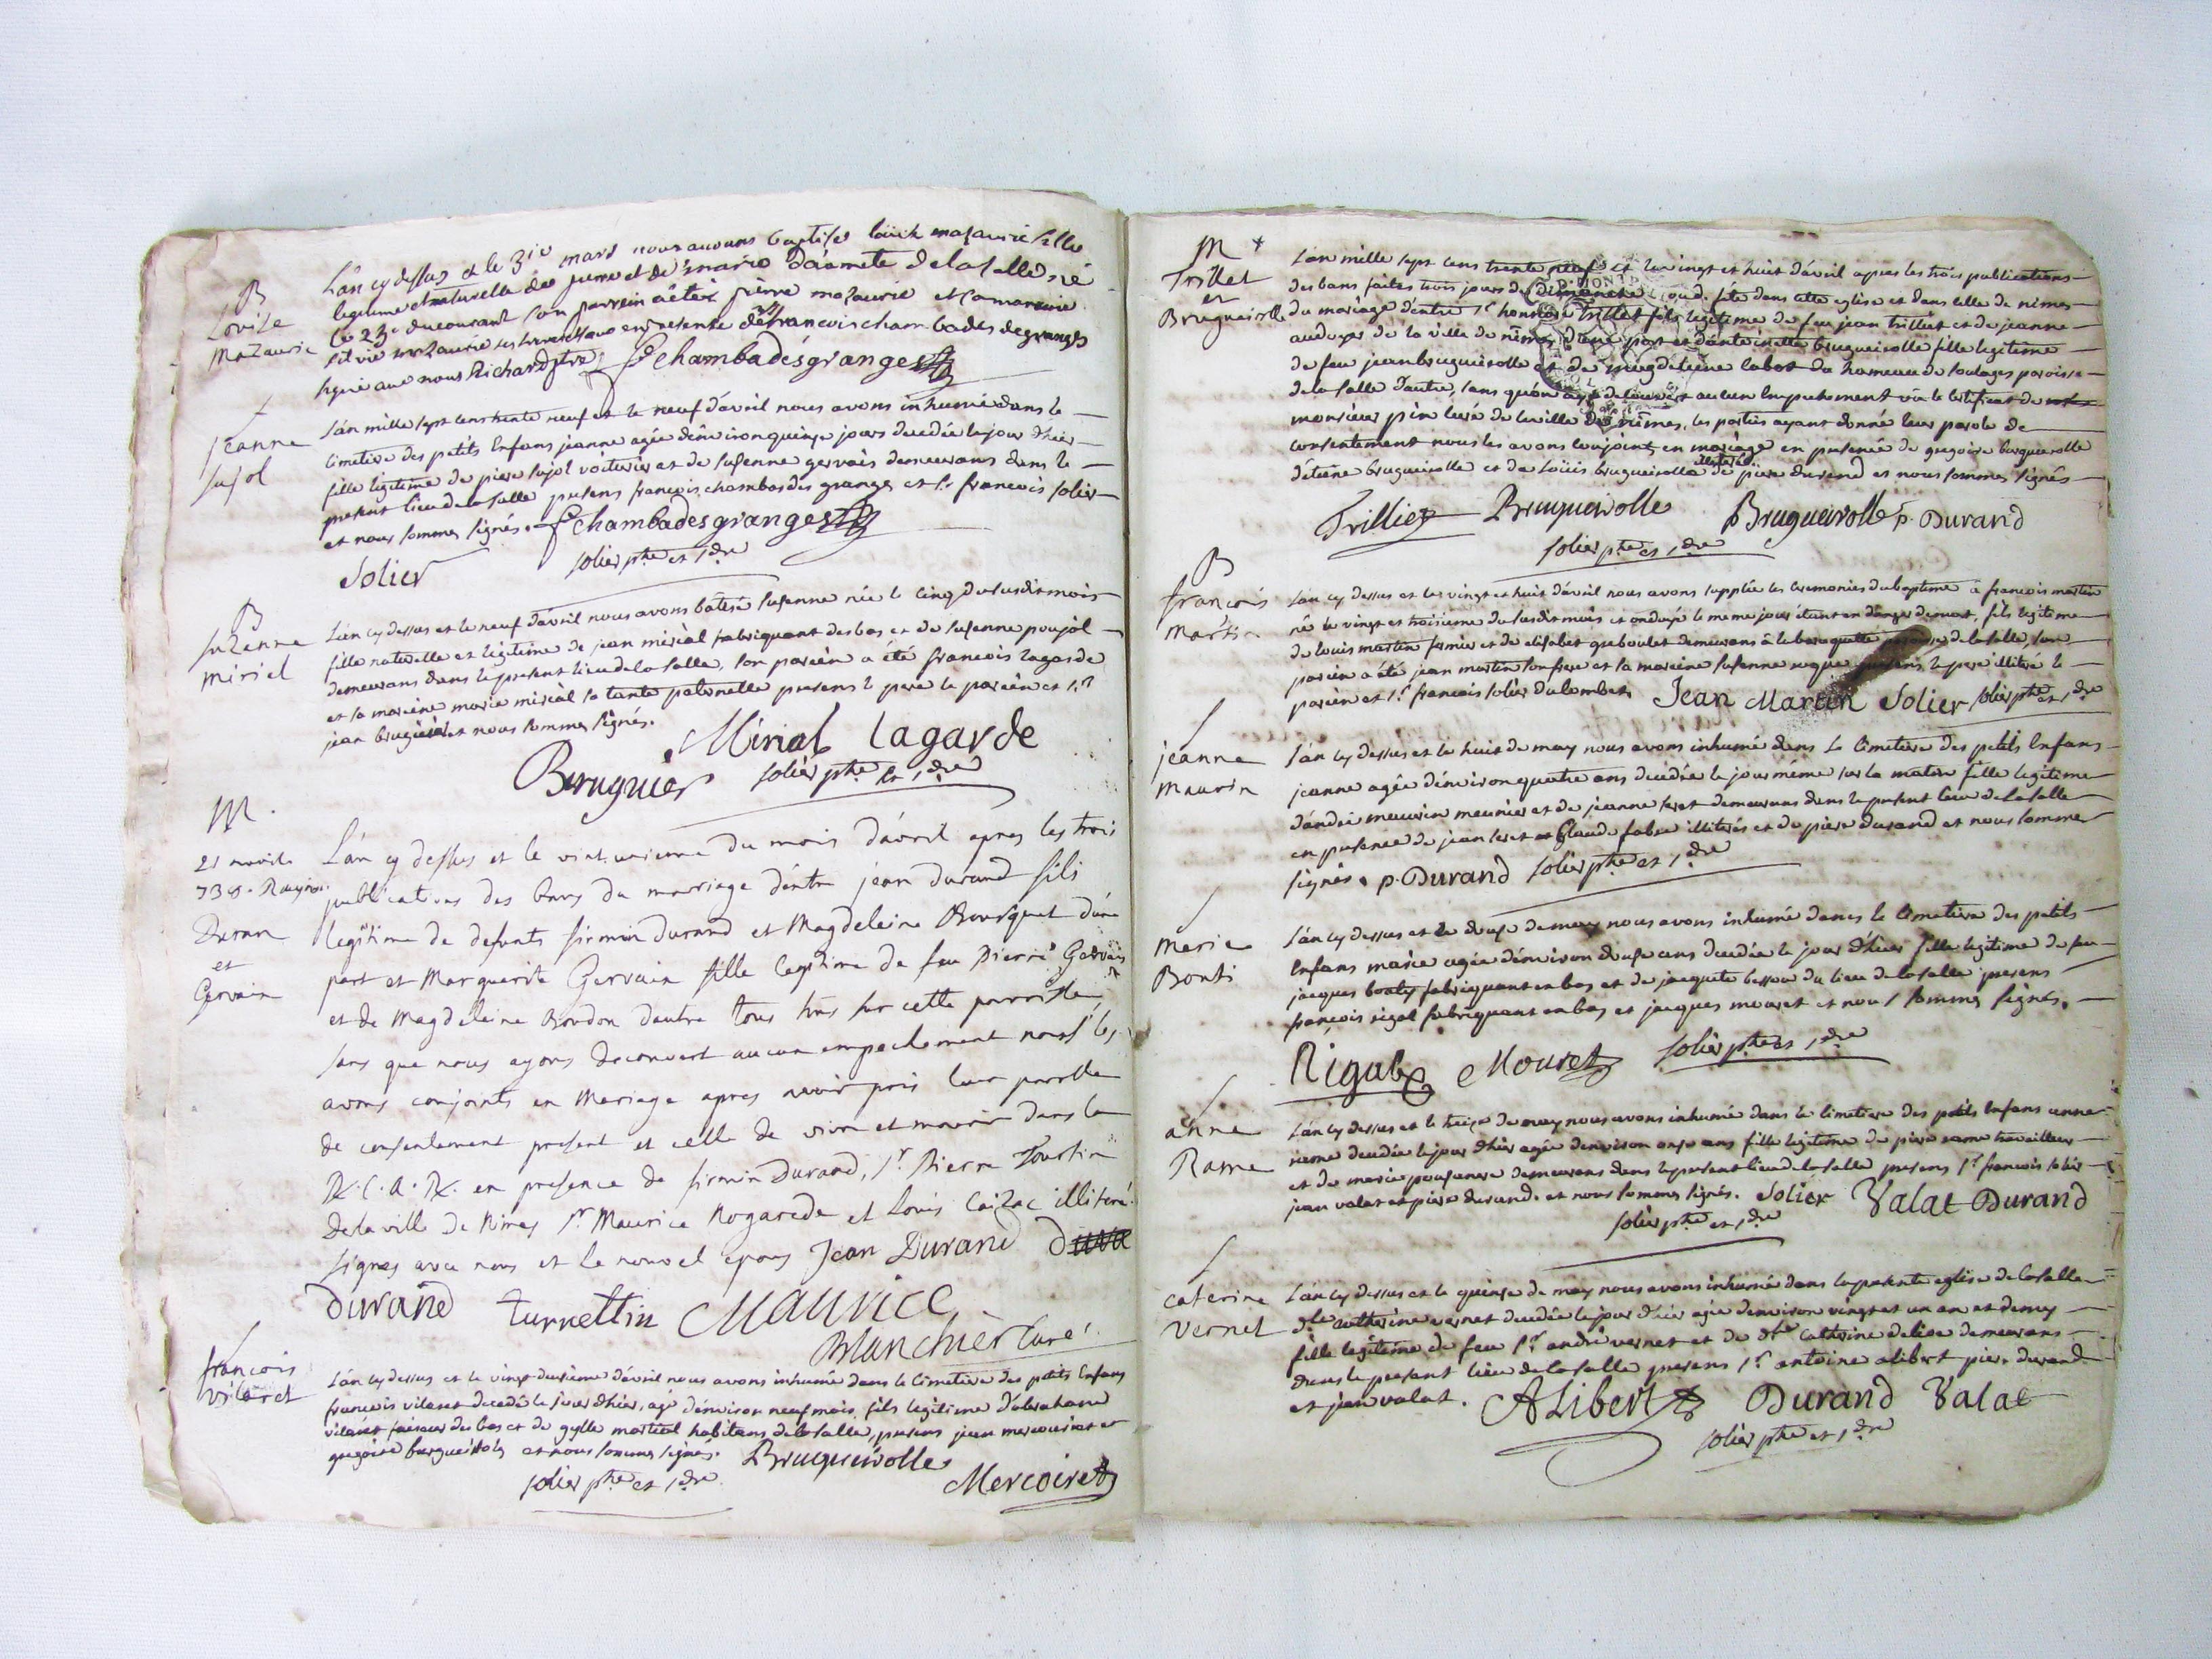 B
Louise
Mazauric
L'an cy dessus et le 31e mars nous avons baptisés mazauric fille
legitime et naturelle de pierre et de marie de lasalle né
le 23e du courant son parrein a etés pierre mazauric et sa marreine
mazauric en presence de francois chambades degranges
signé avec nous Richard ptre F chambadesgranges
jeanne
sujol
L'an mille sept cens trente neuf et le neuf d'avril nous avons inhumé dans le
cimetiere des petits Enfans jeanne agée d'environ quinze jours decedée le jour d'hier
fille legitime de piere sujol voiturier et de susenne gervais demeurans dans le
present lieu de la salle presens francois chambasdes granges et Sr francois solier
et nous sommes signés. F chambadesgranges
Solier solier ptre et s,dre
B
suzenne
miriel
L'an cy dessus et le neuf d'avril nous avons bâtisé susenne née le cinq du susdit mois
fille naturelle et legitime de jean mirial fabriquant des bas et de susenne poujol
demeurans dans le present lieu de la salle, son parein a été francois lagarde
et sa mareine marie mirial sa tante paternelle presens le pere le parein et Sr
jean bruguier et nous sommes signés.
Mirial lagarde
Bruguier solier ptre et s,dre
M.
21 avril
Duran
et
Gervain
L'an cy dessus et le vint unieme du mois d'avril apres les trois
publications des bans du marriage d'entre jean durand fils
legitime de defunts firmin durand et Magdeleine Bousquet d'une
part et Marguerite Gervain fille legitime de feu Pierre Gervais
et de Magdeleine Bordon d'autre tous deux sur cette parroisse,
sans que nous ayons decouvert aucun empechement nous les
avons conjoints en Mariage apres avoir pris leur parolle
de consentement present et celle de vivre et mourir dans la
R. C. A. R. en presence de firmin Durand, Sr Pierre Tourtin
de la ville de Nimes Sr Maurice Nogarede et Louis Caizac illiteré.
signes avec nous et le nouvel epoux Jean Durand
Durand turrettin Maurice
Blanchier Curé.
francois
vilaret
L'an cy dessus et le vingt deusieme d'avril nous avons inhumé dans le cimetiere des petits Enfans
francois vilaret decedé le jour d'hier, agé d'environ neuf mois, fils legitime d'abraham
vilaret faiseur des bas et de gylle martial habitans de la salle, presens jean mercouiret et
gregoire brugueirolle et nous sommes signés. Brugueirolle
solier ptre et s,dre Mercoiret
M +
Trillet
et
Brugueirolle
L'an mille sept cens trente neuf et le vingt et huit d'avril apres les trois publications
des bans faites trois jours de dimanche ou d. fête dans cette eglise et dans celle de nimes
du mariage d'entre Sr honnoré trillet fils legitime de feu jean trillet et de jeanne
audoyer de la ville de nimes d'une part et d'antoinette brugueirolle fille legitime
de feu jean brugueirolle et de magdeleine labot du hameau de soulages paroisse
de la salle d'autre, sans qu'on aye decouvert aucun Empechement vû le certificat de
monsieur p curé de la ville de nimes, les parties ayant donné leur parole de
consentement nous les avons conjoints en mariage en presence de gregoire brugueirolle
d'etiene brugueirolle et de Loüis brugueirolle illiterés de piere durand et nous sommes signés
Trilliet Brugueirolle Brugueirolle p. Durand
solier ptre et s,dre
B
francois
martin
L'an cy dessus et les vingt et huit d'avril nous avons supplée les ceremonies du bapteme a francois martin
né le vingt et troisieme du susdit mois et ondoyé le meme jour étant en danger de mort, fils legitime
de louis martin fermier et de elisabet greboulet demeurans à la beroquette paroisse de la salle, son
parein a été jean martin son frere et sa mareine susenne presens le pere illiteré le
parein et Sr francois solier du lombes. Jean Martin Solier solier ptre et s,dre
jeanne
maurin
L'an cy dessus et le huit de may nous avons inhumé dans Le Cimetiere des petits Enfans
jeanne agée d'environ quatre ans decedée le jour même sur la matin fille legitime
d'andré maurin meunier et de jeanne seret demeurans dans le present lieu de la salle
en presence de jean seret et Claude fabre illiterés et de piere durand et nous sommes
signés. p. Durand solier ptre et s,dre
Marie
Bonti
L'an cy dessus et le douse de may nous avons inhumé dans le cimetiere des petits
Enfans marie agée d'environ douse ans decedée le jour d'hier fille legitime de feu
jacques fabriquant en bas et de jacquete bessou du lieu de la salle presens
françois rigal fabriquant en bas et jacques mouret et nous sommes signés,
Rigal Mouret solier ptre et s,dre
anne
Rame
L'an cy dessus et le treise de may nous avons inhumé dans le cimetiere des petits Enfans anne
rame decedée le jour d'hier agée d'environ onse ans fille legitime de piere rame travailleur
et de marie demeurans dans le present lieu de la salle presens Sr francois solier
jean valat et piere durand. et nous sommes signés. Solier Valat Durand
solier ptre et s,dre
Caterine
Vernet
L'an cy dessus et le quinse de may nous avons inhumé dans la presente eglise de la salle
dlle catherine vernet decedée le jour d'hier agée d'environ vingt et un an et demy
fille legitime de feu Sr andré vernet et de dlle Catherine delise demeurans
dans le present lieu de la salle presens Sr antoine alibert piere durand
et jean valat. ALibert Durand Valat
solier ptre et s,dre